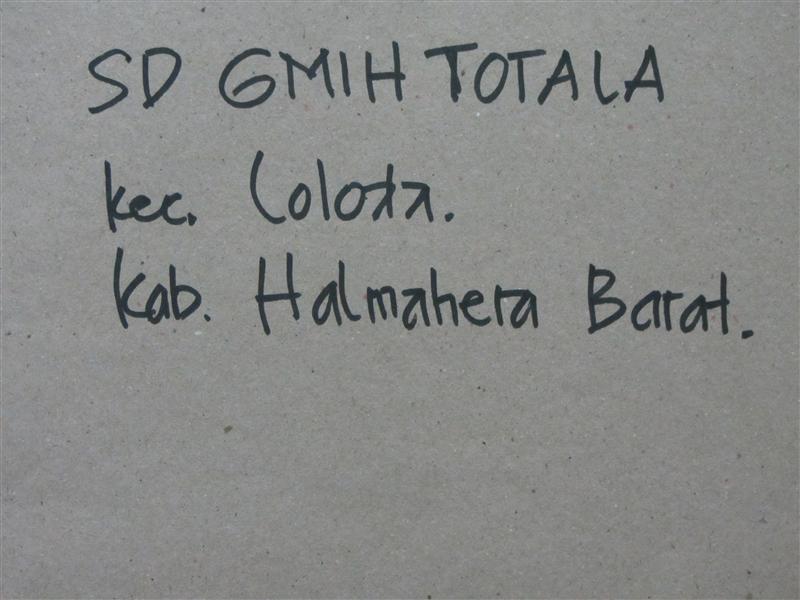 SD GMIH TOTALA
kec. Loloda.
Kab. Halmahera Barat.